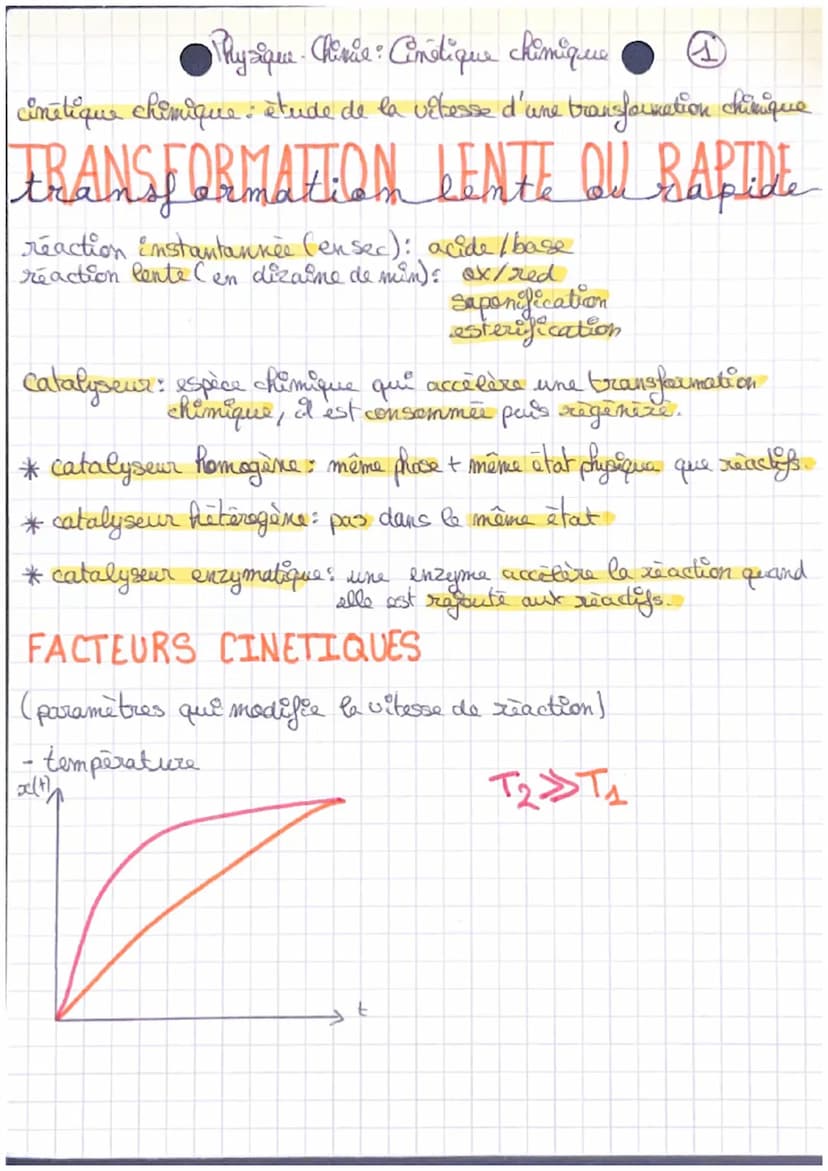 Physique-Chimie: Cinétique chimique 1
cinétique chimique: étude de la vitesse d'une transformation chimique
TRANSFORMATION LENTE OU RAPIDE
transformation lente ou rapide
réaction instantannée (en sec): acide/base
réaction lente (en dizaine de min): ox/red
saponification
esterification
Catalyseur: espèce chimique qui accélère une transformation
chimique, il est consommée puis régénéré.
* catalyseur homogène: même phase + même état physique que réactifs.
* catalyseur hétérogène: pas dans le même état
* catalyseur enzymatique: une enzyme accélère la réaction quand
elle est rajouté aux réactifs.
FACTEURS CINETIQUES
(paramètres qui modifie la vitesse de réaction)
- température
x(t)
T2 >> T1
t